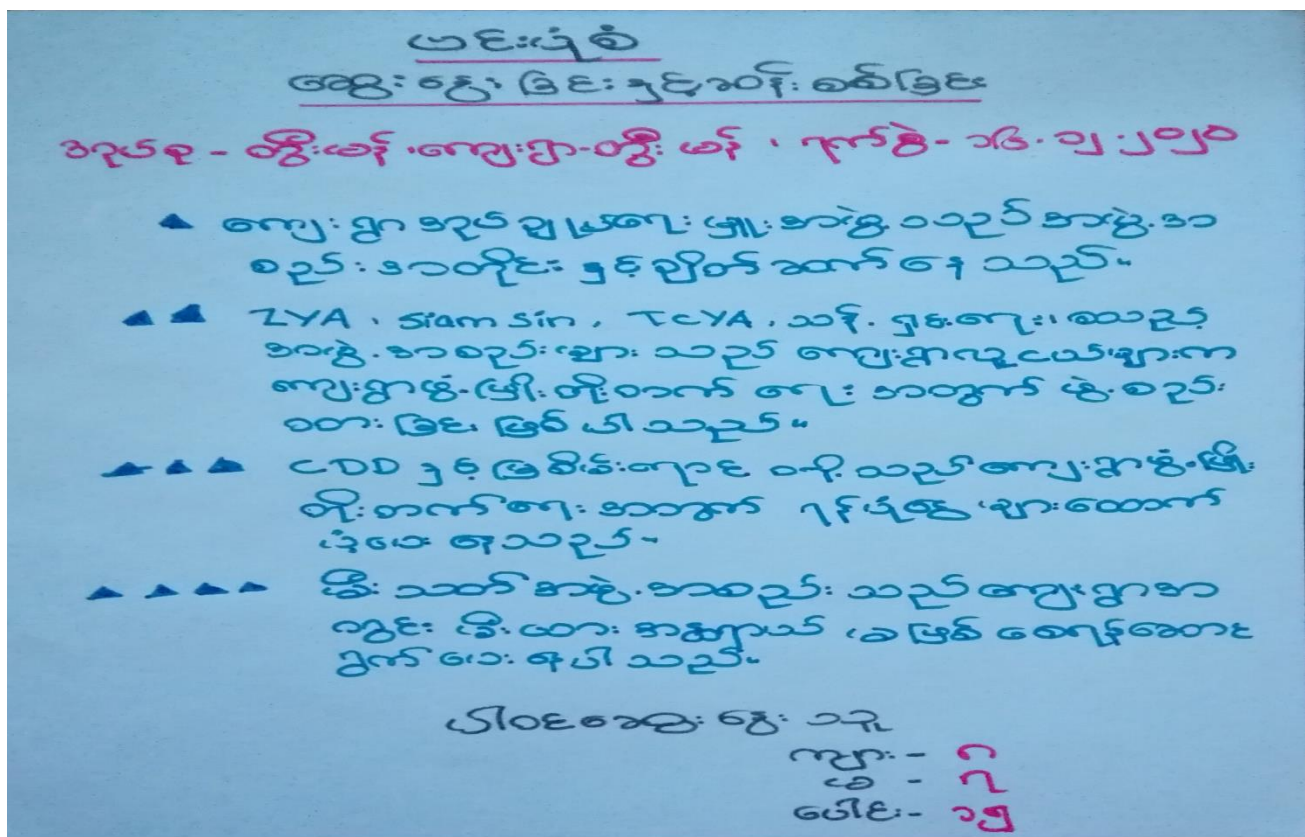 ဗင်းပုံစံ
ဆွေးနွေးခြင်းနှင့်ဆန်းစစ်ခြင်း
အုပ်စု - တွီးမန်၊ ကျေးရွာ-တွီးမန်၊ ရက်စွဲ- ၁၆.၁၂.၂၀၂၀
▲ ကျေးရွာအုပ်ချုပ်ရေးမှူးအဖွဲ့သည် အဖွဲ့အ
စည်းအတိုင်းနှင့်ချိတ်ဆက်နေသည်။
▲▲ ZYA, Siamsin, TcYA, သန့်ရှင်းရေး၊ စသည့်
အဖွဲ့အစည်းများသည် ကျေးရွာလူငယ်များက
ကျေးရွာဖွံ့ဖြိုးတိုးတက်ရေးအတွက် ဖွဲ့စည်း
ထားခြင်းဖြစ်ပါသည်။
▲▲▲ CDD နှင့်မြစိမ်းရောင်တို့သည်ကျေးရွာဖွံ့ဖြိုး
တိုးတက်ရေးအတွက် ရန်ပုံငွေများထောက်
ပံ့ပေးရသည်။
▲▲▲▲ မီးသတ်အဖွဲ့အစည်းသည်ကျေးရွာအ
တွင်းမီးဘေးအန္တရာယ်မဖြစ်စေရန်ဆောင်
ရွက်ပေးရပါသည်။
ပါဝင်ဆွေးနွေးသူ
ကျား - ၈
မ - ၇
ပေါင်း - ၁၅